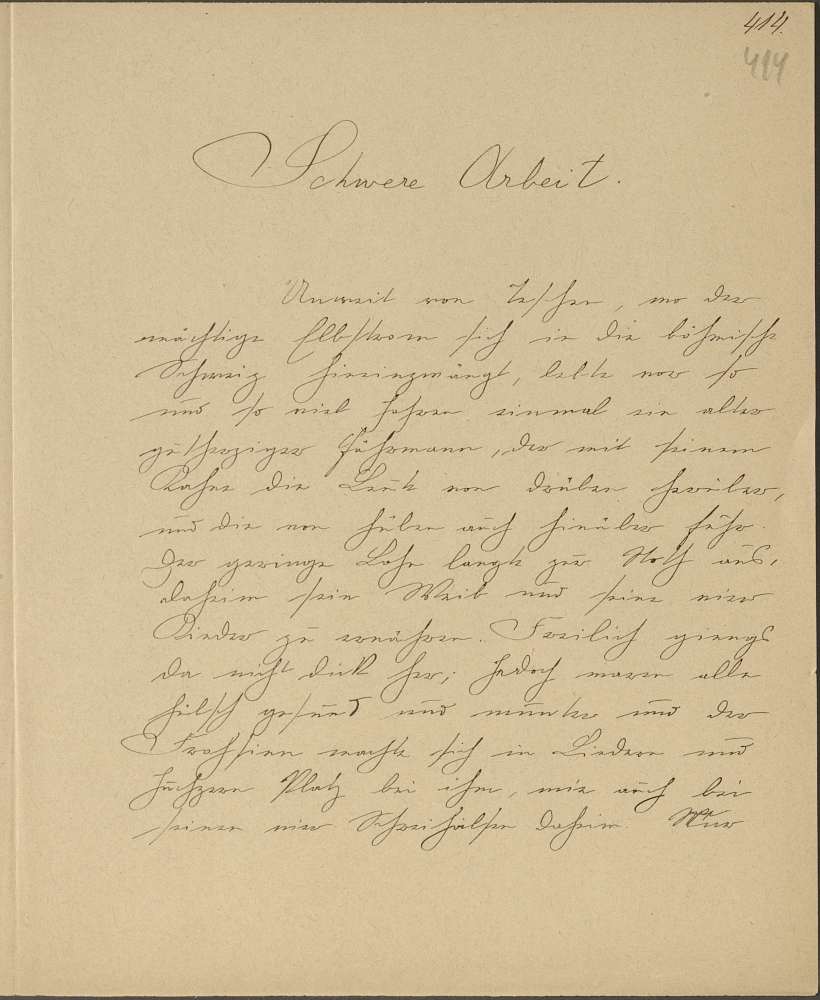 414.
414
Schwere Arbeit.
Unweit von Teschen, wo der
mächtige Elbstrom sich in die böhmische
Schweiz hineinzwängt, lebte vor so
und so viel Jahren einmal ein alter
gutherziger Fährmann, der mit seinem
Kahne die Leute von drüben herüber,
und die von hüben auch hinüber fuhr.
Der geringe Lohn langte zur Noth aus,
daheim sein Weib und seine vier
Kinder zu ernähren. Freilich giengs
da nicht dick her; jedoch waren alle
hübsch gesund und munter und der
Frohsinn machte sich in Liedern und
Juchzern Platz bei ihm, wie auch bei
seinen vier Schreihälsen daheim. Nur